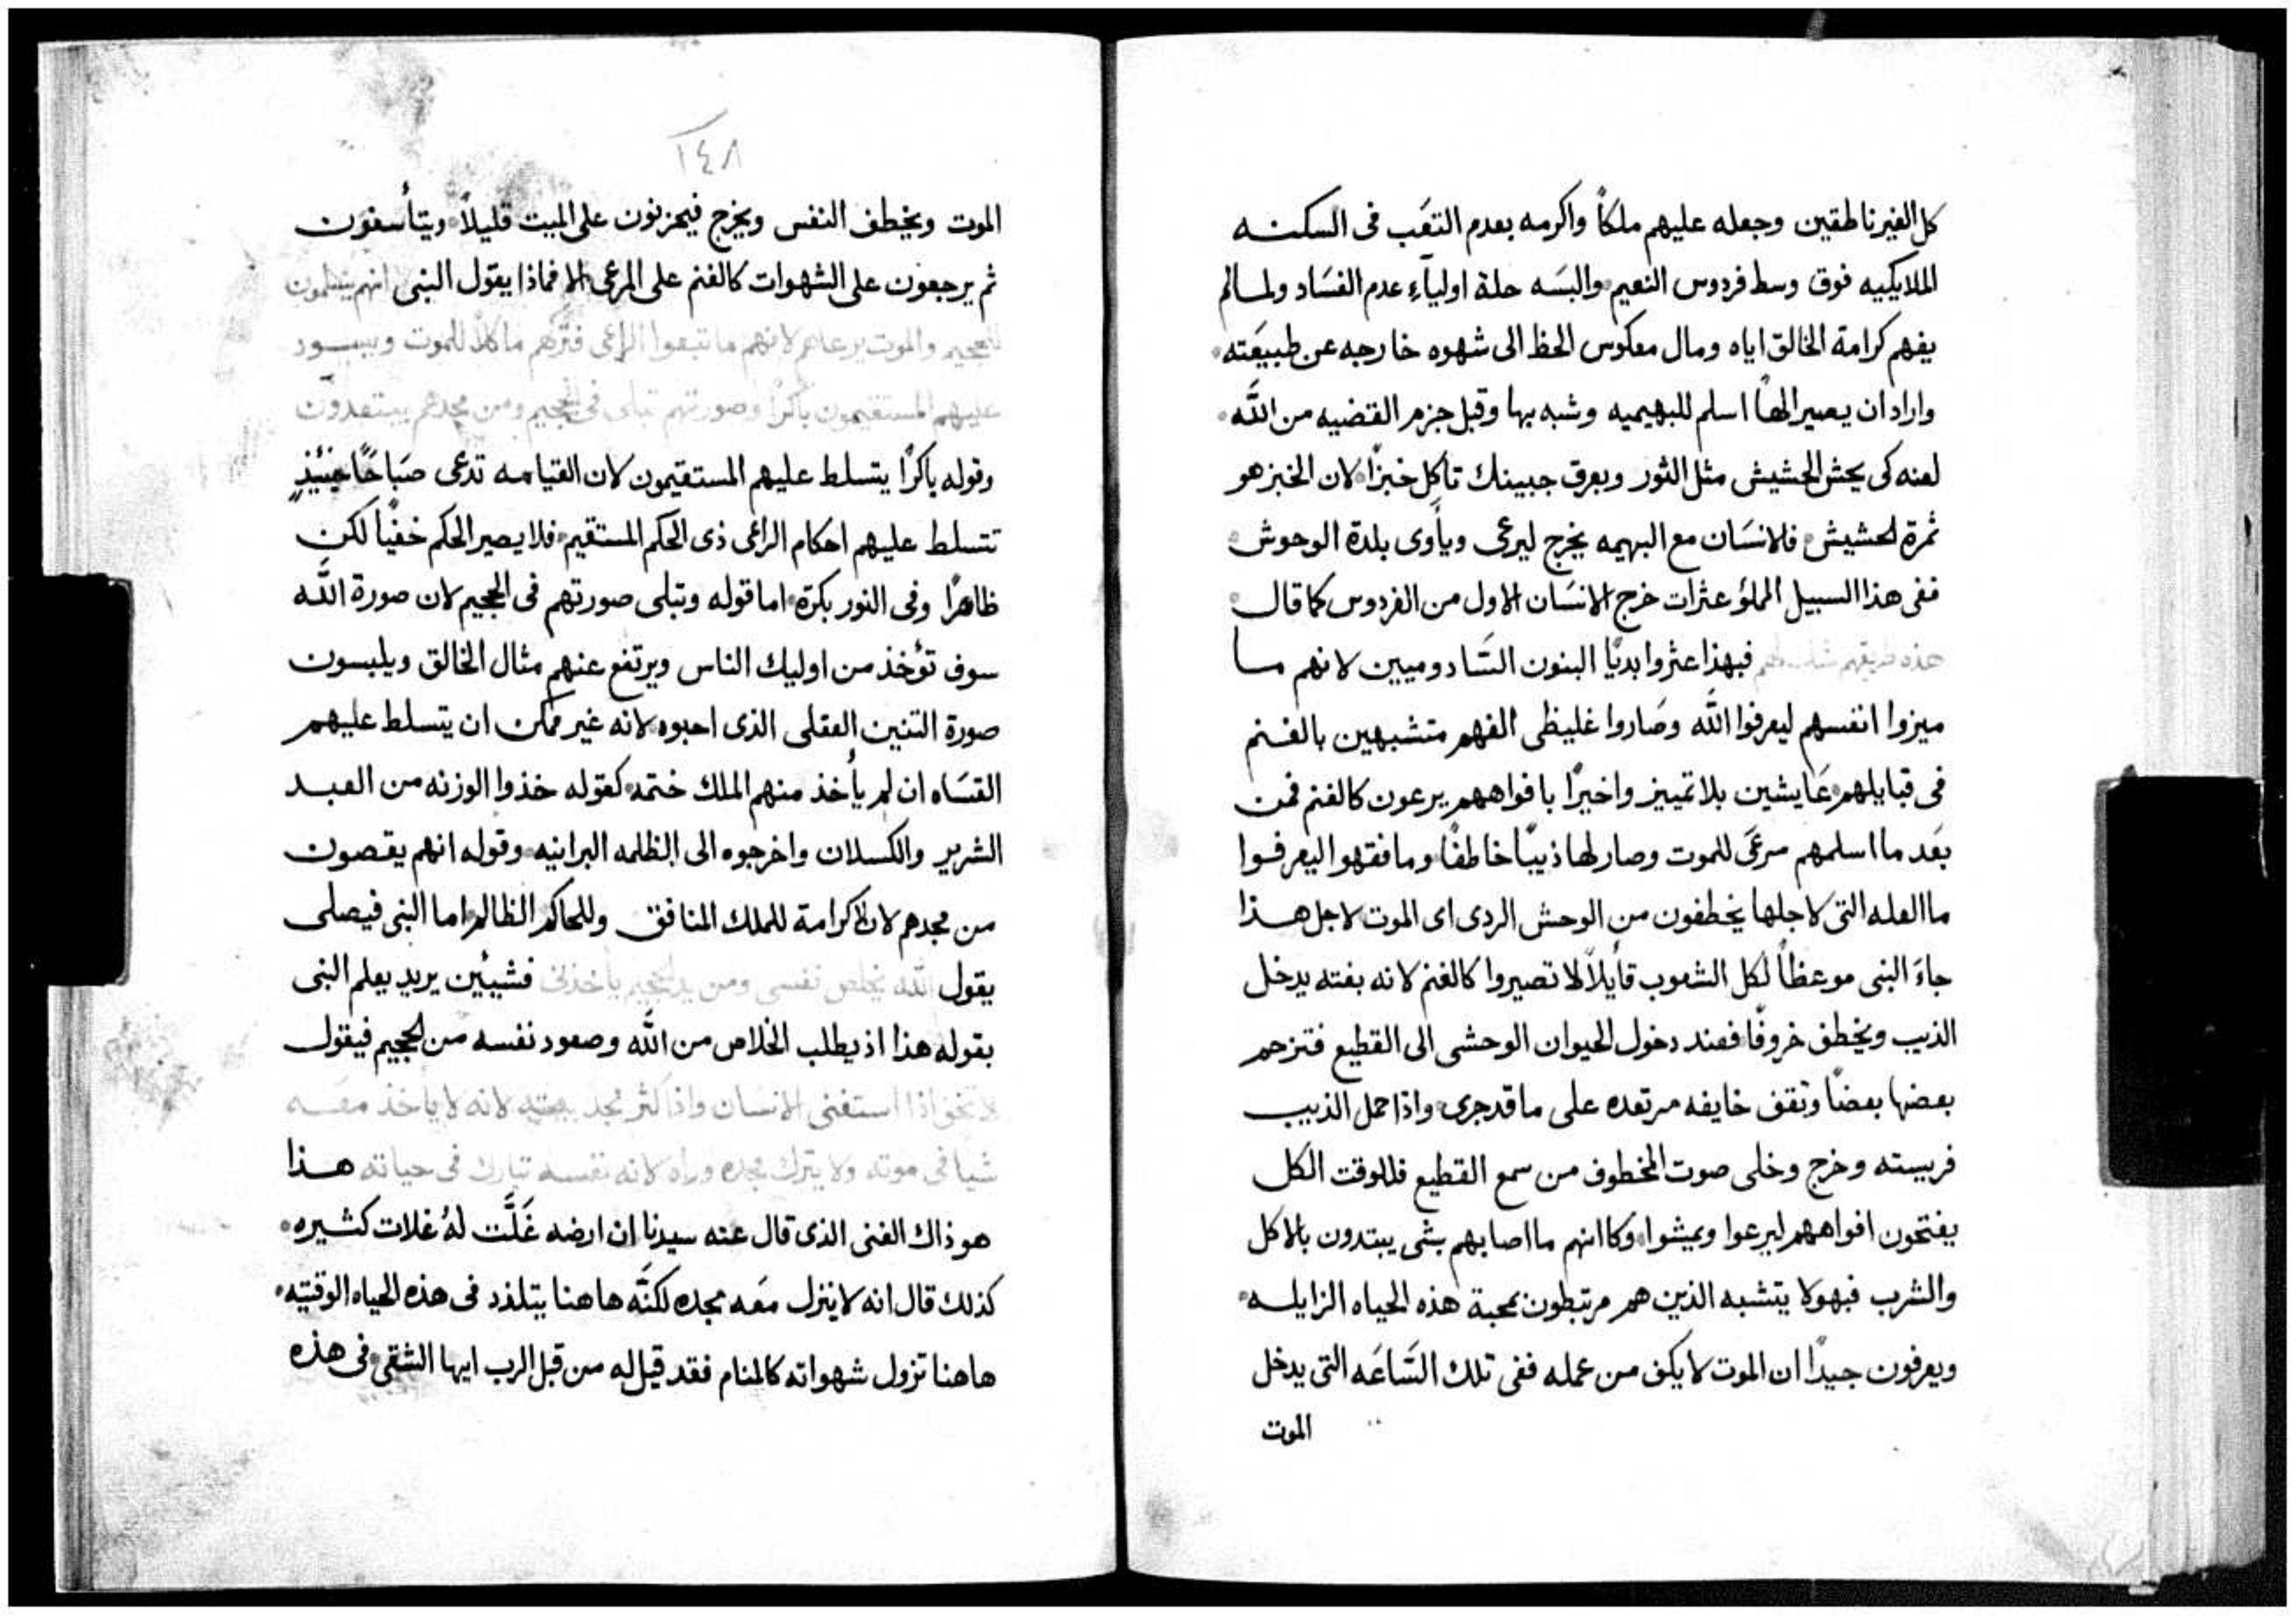 كل الغير ناطقين وجعله عليهم ملكاً واكرمه بعدم التعَب فى السكنه
الملايكيه فوق وسط فردوس النعيم والبسَه حلة اولياءِ عدم الفسَاد ولما لم
يفهم كرامة الخالق اياه ومال معكوس الحظ الى شهوه خارجه عن طبيعَته
واراد ان يصير الهاً اسلم للبهيميه وشبه بها وقبل جزم القضيه من اللَّه
لعنه كى يحش الحشيش مثل الثور وبعرق جبينك تاكل خبزًا لان الخبز هو
ثمرة لحشيش فلانسَان مع البهيمه يخرج ليرعى ويأوى بلدة الوحوش
ففى هذا السبيل المملؤ عثرات خرج الانسَان الاول من الفردوس كما قال
هذه طريقهم شك لهم فبهذا عثروا بديًا البنون السَّادوميين لانهم ما
ميزوا انفسهم ليعرفوا اللَّه وصَاروا غليظى الفهم متشبهين بالغنم
فى قبايلهم عَايشين بلا تمييز واخيرًا بافواههم يرعون كالغنم فمن
بعَد ما اسلمهم مرعَى للموت وصار لها ذيبًا خاطفًا وما فقهوا ليعرفوا
ما العله التى لاجلها يخطفون من الوحش الردى اى الموت لاجل هذا
جاءَ النبى موعظاً لكل الشعوب قايلاً لا تصيروا كالغنم لانه بغته يدخل
الذيب ويخطف خروفًا فعند دخول الحيوان الوحشى الى القطيع فتزحم
بعضها بعضًا وتقف خايفه مرتعده على ما قد جرى واذا حمل الذيب
فريسته وخرج وخلى صوت المخطوف من سمع القطيع فللوقت الكل
يفتحون افواههم ليرعوا ويمشوا وكاانهم ما اصابهم بشى يبتدون بالاكل
والشرب فبهولا يتشبه الذين هم مرتبطون بمحبة هذه الحياه الزايله
ويعرفون جيدًا ان الموت لا يكف من عمله ففى تلك السَّاعَه التى يدخل
الموت
١٤٨
الموت ويخطف النفس ويخرج فيحزنون على الميت قليلاً ويتأسفون
ثم يرجعون على الشهوات كالغنم على المرعى الا فماذا يقول النبى انهم
للجحيم والموت يرعاهم لانهم ما تبعوا الراعى فتركهم ماكلاً للموت ويسود
عليهم المستقيمون باكرًا وصورتهم تبلى فى الجحيم ومن مجدهم يبتعدون
وقوله باكرًا يتسلط عليهم المستقيمون لان القيامه تدعى صَباحًا حينئذٍ
تتسلط عليهم احكام الراعى ذى الحكم المستقيم فلا يصير الحكم خفيًا لكن
ظاهرًا وفى النور بكرة اما قوله وتبلى صورتهم فى الجحيم لان صورة اللَّه
سوف تؤخذ من اوليك الناس ويرتفع عنهم مثال الخالق ويلبسون
صورة التنين العقلى الذى احبوه لانه غير ممكن ان يتسلط عليهم
القسَاه ان لم يأخذ منهم الملك ختمه كقوله خذوا الوزنه من العبد
الشرير والكسلان واخرجوه الى الظلمه البرانيه وقوله انهم يقصون
من مجدهم لان لا كرامة للملك المنافق وللحاكم الظالم اما النبى فيصلى
يقول اللَّه يخلص نفسى ومن يد لجحيم ياخذنى فشيئين يريد يعلم النبى
بقوله هذا اذ يطلب الخلاص من اللَّه وصعود نفسه من لجحيم فيقول
لا تخف اذا استغنى الانسَان واذا كثر مجد بيته لانه لا ياخذ معَه
شيا فى موته ولا يترك مجده وراه لانه نفسه تبارك فى حياته هذا
هو ذاك الغنى الذى قال عنه سيدنا ان ارضه غَلَّت لهُ غلات كثيره
كذلك قال انه لا ينزل معَه مجده لكنَّه هاهنا يتلذذ فى هذه الحياه الوقتيه
هاهنا تزول شهواته كالمنام فقد قيل له من قبل الرب ايها الشقى فى هذه